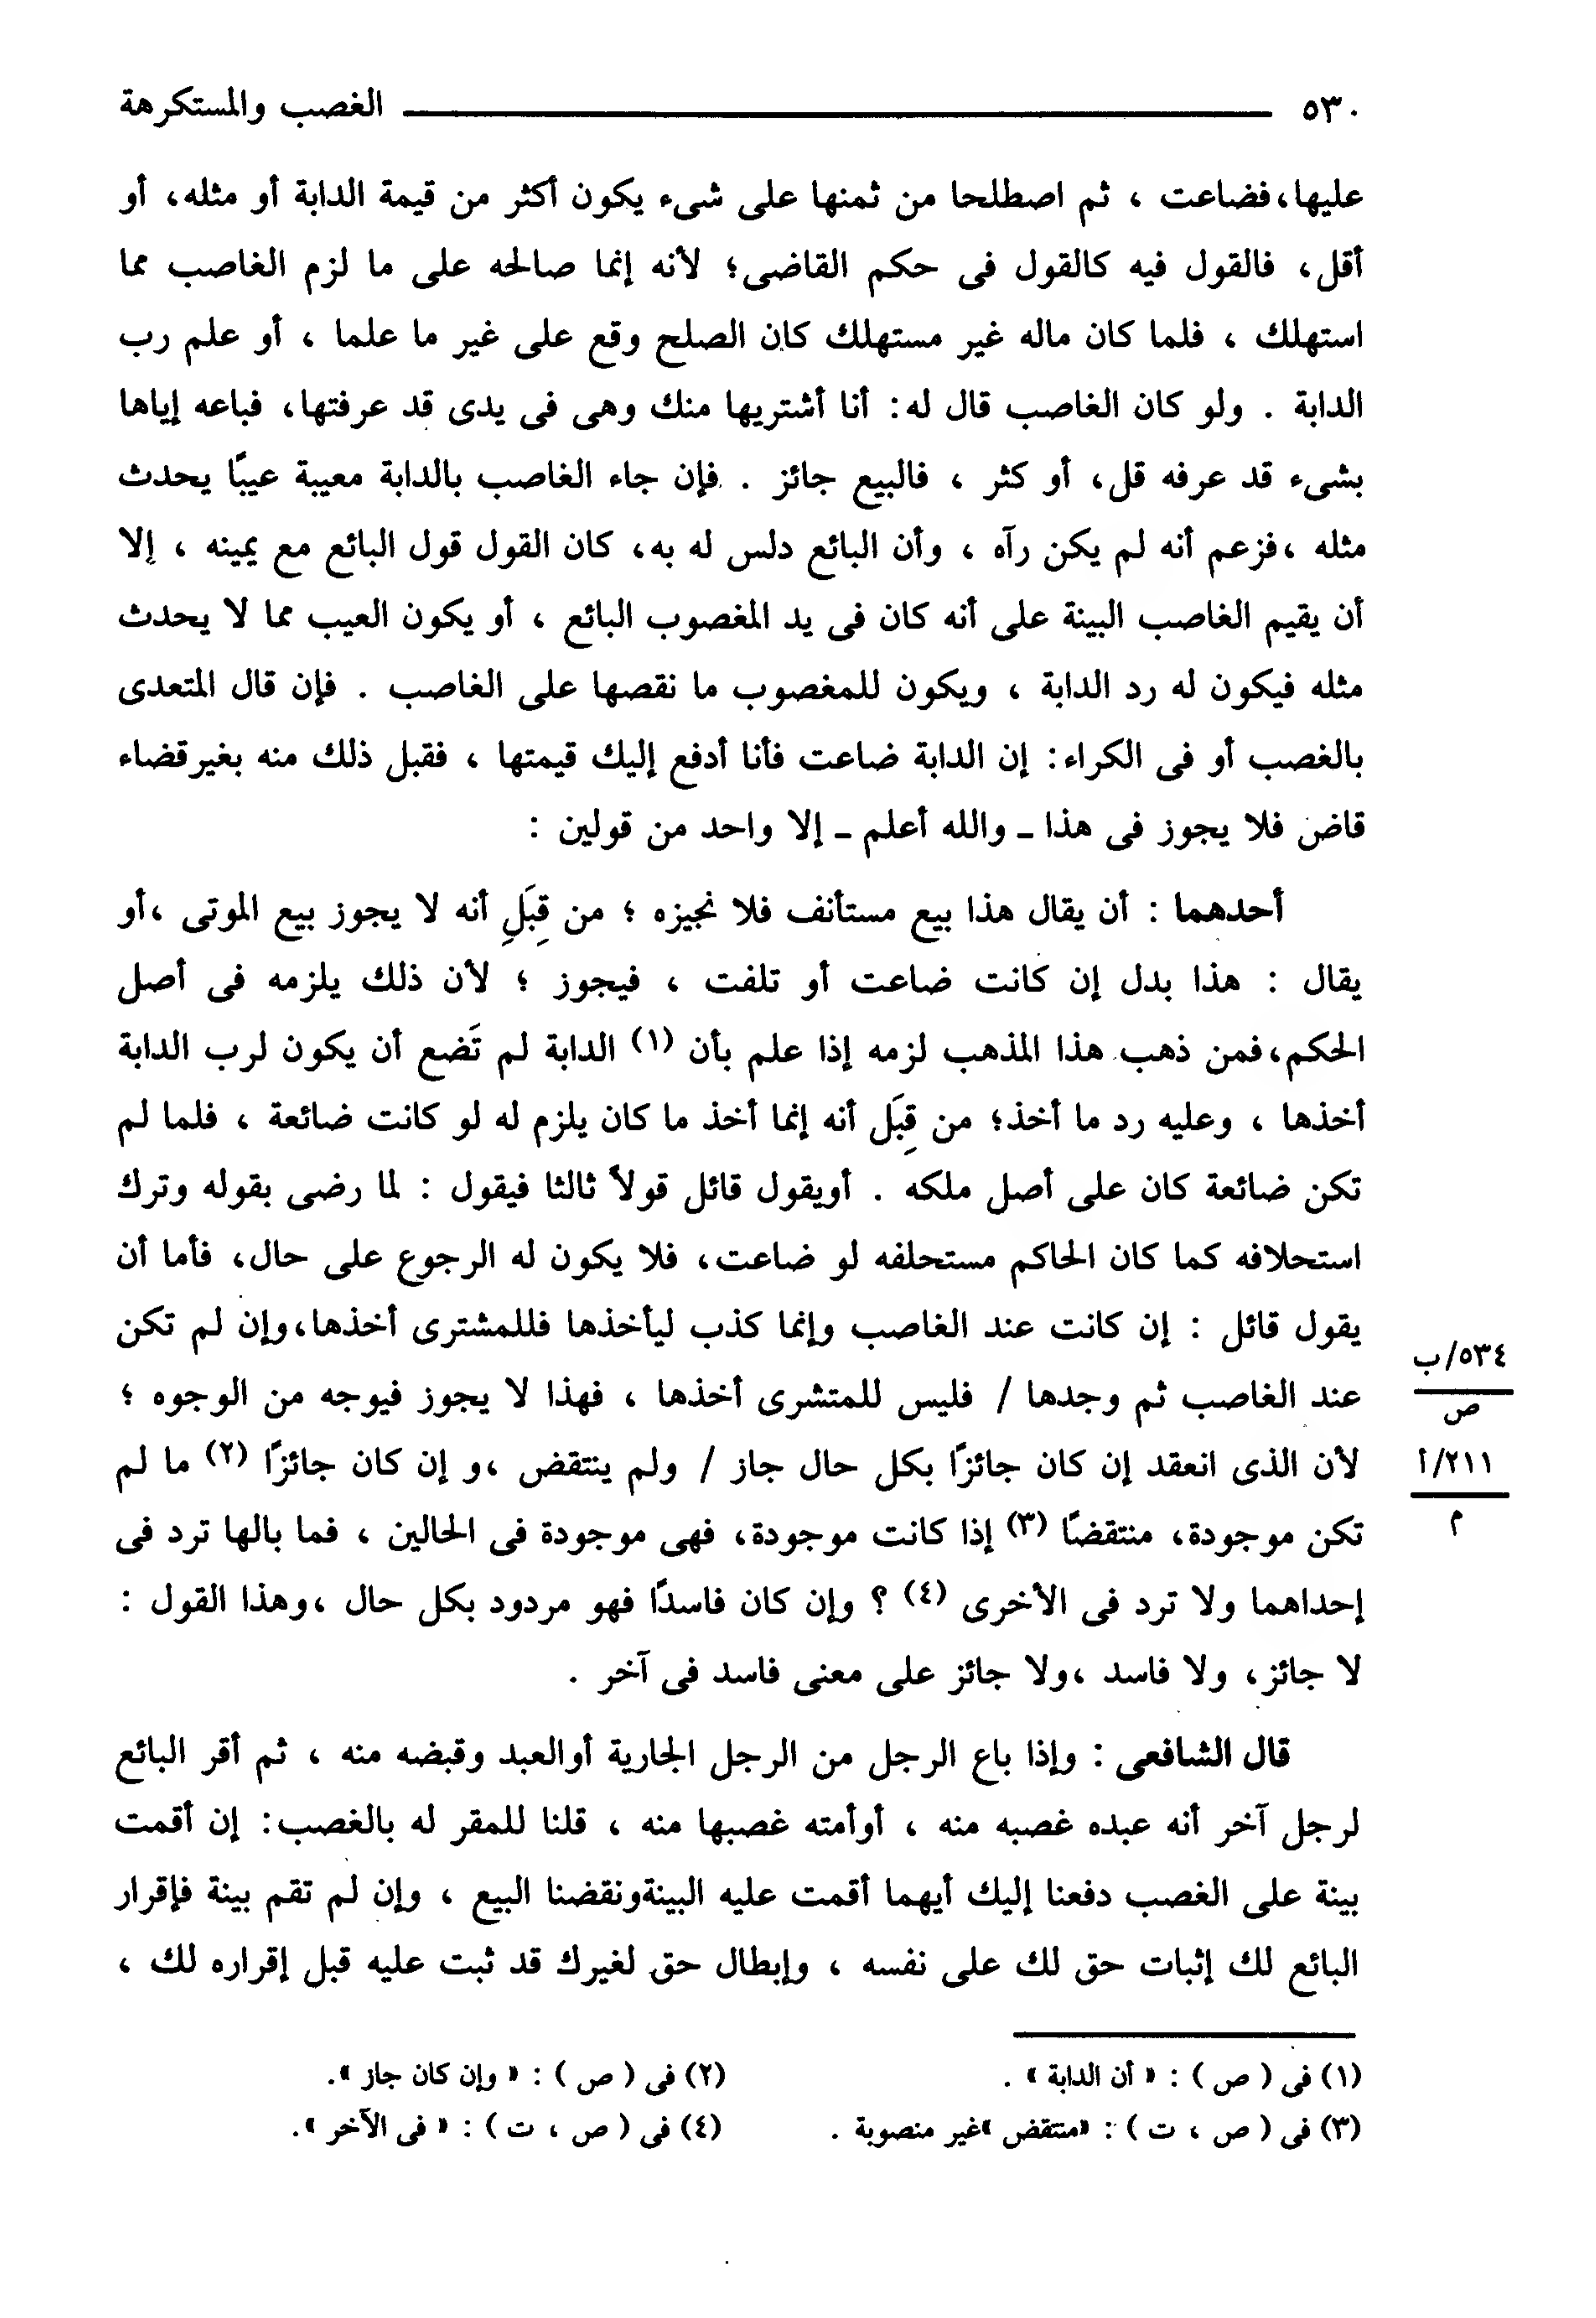 ٥٣٠ الغصب والمستكرهة
عليها،فضاعت ، ثم اصطلحا من ثمنها على شىء يكون أكثر من قيمة الدابة أو مثله، أو
أقل، فالقول فيه كالقول فى حكم القاضى؛ لأنه إنما صالحه على ما لزم الغاصب مما
استهلك ، فلما كان ماله غير مستهلك كان الصلح وقع على غير ما علما ، أو علم رب
الدابة . ولو كان الغاصب قال له: أنا أشتريها منك وهى فى يدى قد عرفتها، فباعه إياها
بشىء قد عرفه قل، أو كثر ، فالبيع جائز . فإن جاء الغاصب بالدابة معيبة عيبًا يحدث
مثله ،فزعم أنه لم يكن رآه ، وأن البائع دلس له به، كان القول قول البائع مع يمينه ، إلا
أن يقيم الغاصب البينة على أنه كان فى يد المغصوب البائع ، أو يكون العيب مما لا يحدث
مثله فيكون له رد الدابة ، ويكون للمغصوب ما نقصها على الغاصب . فإن قال المتعدى
بالغصب أو فى الكراء: إن الدابة ضاعت فأنا أدفع إليك قيمتها ، فقبل ذلك منه بغيرقضاء
قاض فلا يجوز فى هذا ـ والله أعلم ـ إلا واحد من قولين :
أحدهما : أن يقال هذا بيع مستأنف فلا نجيزه ؛ من قِبَلِ أنه لا يجوز بيع الموتى ،أو
يقال : هذا بدل إن كانت ضاعت أو تلفت ، فيجوز ؛ لأن ذلك يلزمه فى أصل
الحكم،فمن ذهب هذا المذهب لزمه إذا علم بأن (١) الدابة لم تَضع أن يكون لرب الدابة
أخذها ، وعليه رد ما أخذ؛ من قِبَل أنه إنما أخذ ما كان يلزم له لو كانت ضائعة ، فلما لم
تكن ضائعة كان على أصل ملكه . أويقول قائل قولاً ثالثا فيقول : لما رضى بقوله وترك
استحلافه كما كان الحاكم مستحلفه لو ضاعت، فلا يكون له الرجوع على حال، فأما أن
يقول قائل : إن كانت عند الغاصب وإنما كذب ليأخذها فللمشترى أخذها،وإن لم تكن
عند الغاصب ثم وجدها / فليس للمتشرى أخذها ، فهذا لا يجوز فيوجه من الوجوه ؛
لأن الذى انعقد إن كان جائزًا بكل حال جاز / ولم ينتقض ،و إن كان جائزًا (٢) ما لم
تكن موجودة، منتقضًا (٣) إذا كانت موجودة، فهى موجودة فى الحالين ، فما بالها ترد فى
إحداهما ولا ترد فى الأخرى (٤) ؟ وإن كان فاسدًا فهو مردود بكل حال ،وهذا القول :
لا جائز، ولا فاسد ،ولا جائز على معنى فاسد فى آخر .
قال الشافعى : وإذا باع الرجل من الرجل الجارية أوالعبد وقبضه منه ، ثم أقر البائع
لرجل آخر أنه عبده غصبه منه ، أوأمته غصبها منه ، قلنا للمقر له بالغصب: إن أقمت
بينة على الغصب دفعنا إليك أيهما أقمت عليه البينةونقضنا البيع ، وإن لم تقم بينة فإقرار
البائع لك إثبات حق لك على نفسه ، وإبطال حق لغيرك قد ثبت عليه قبل إقراره لك ،
٥٣٤/ب
ص
٢١١/أ
م
(١) فى ( ص ) : « أن الدابة » . (٢) فى ( ص ) : « وإن كان جاز ».
(٣) فى ( ص ، ت ) : «منتقض »غير منصوبة . (٤) فى ( ص ، ت ) : « فى الآخر ».